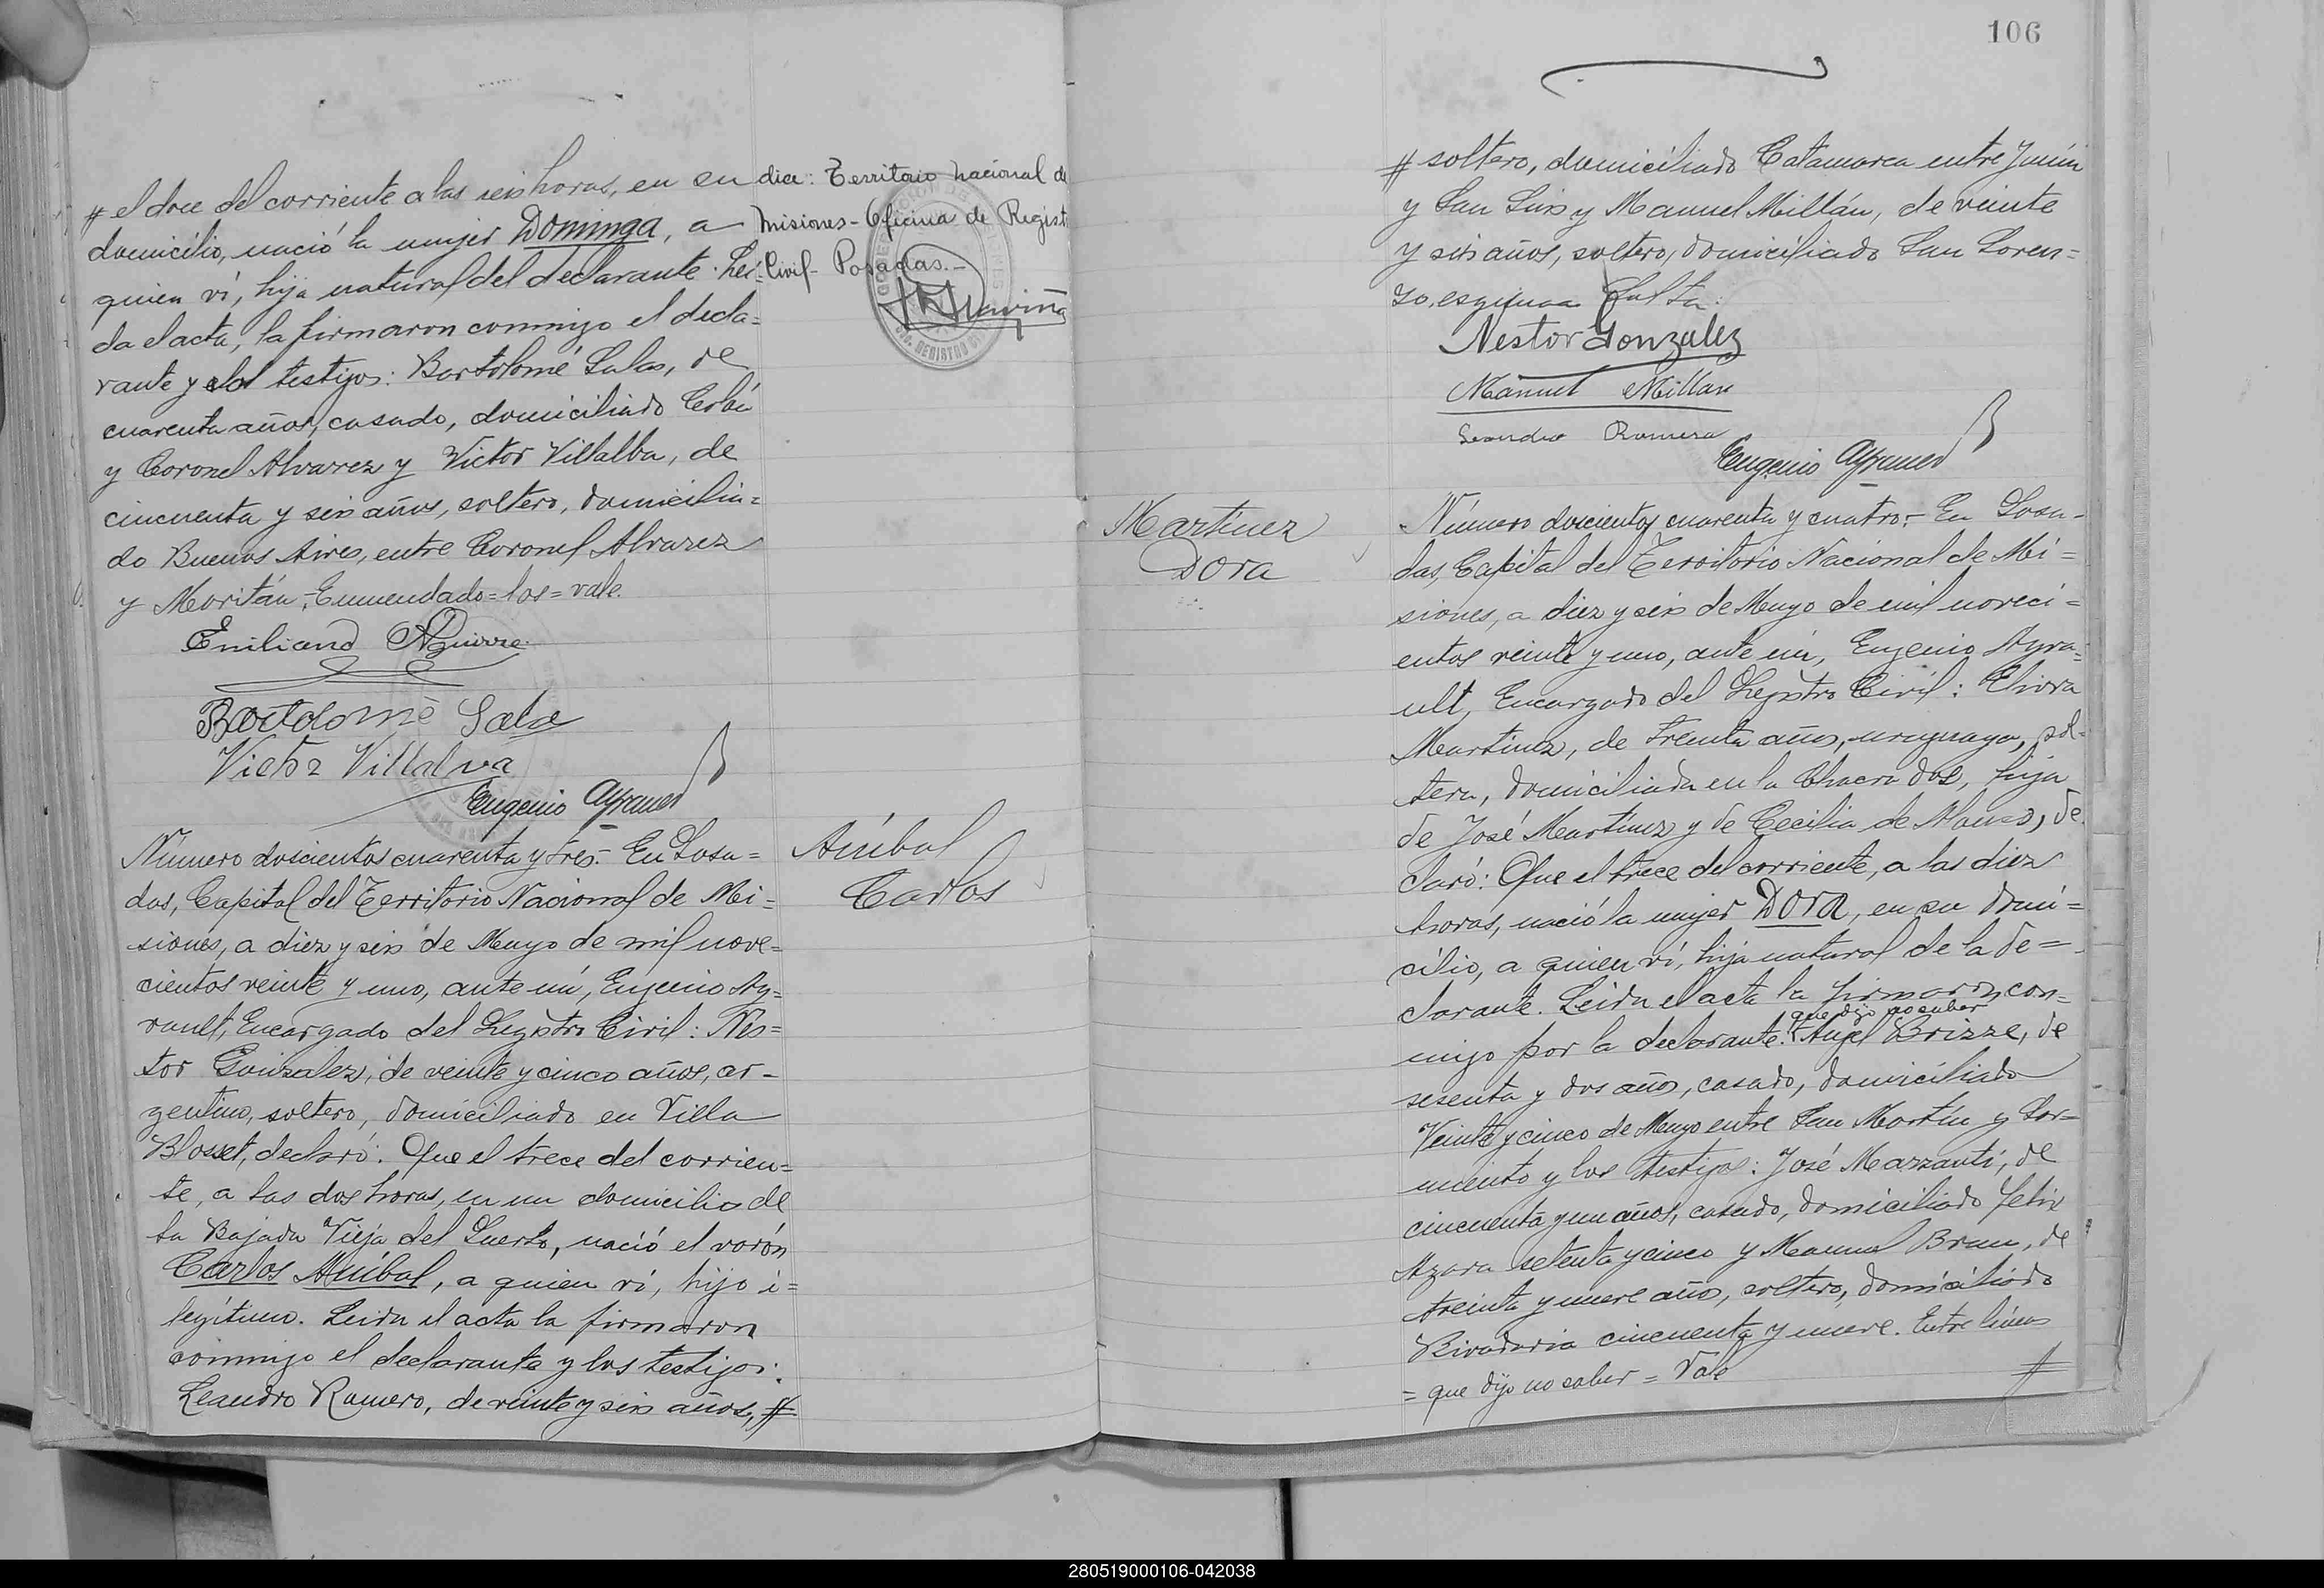 # el doce del corriente a las seis horas, en su
domicilio, nació la mujer Dominga, a
quien ví, hija natural del declarante. Lei-
da el acta, la firmaron conmigo el decla=
rante y los testigos: Bartolomé Salas, de
cuarenta años, casado, domiciliado
y Coronel Alvarez y Victor Villalba, de
cincuenta y seis años, soltero, domicilia=
do Buenos Aires, entre Coronel Alvarez
y Moritán,- Enmendado=los=vale.
Emiliano Aguirre
Bartolomé Sala
Victor Villalva
Eugenio Ayrault
dice: Territorio Nacional de
Misiones- Oficina de Regist
Civil- Posadas.-
Número doscientos cuarenta y tres.- En Posa=
das, Capital del Territorio Nacional de Mi=
siones, a diez y seis de Mayo de mil nove=
cientos veinte y uno, ante mí, Eugenio Ay=
rault, Encargado del Registro Civil: Nés=
tor González, de veinte y cinco años, ar-
gentino, soltero, domiciliado en Villa
Blosset, declaró: Que el trece del corrien=
te, a las dos horas, en un domicilio de
la Bajada Vieja del Puerto, nació el varón
Carlos Aníbal, a quien ví, hijo i=
legítimo. Leida el acta la firmaron
conmigo el declarante y los testigos:
Leandro Romero, de veinte y seis años, #
Aníbal
Carlos
106
# soltero, domiciliado Catamarca entre Junín
y San Luis y Manuel Millán, de veinte
y seis años, soltero, domiciliado San Loren=
zo, esquina Salta.
Nestor Gonzalez
Manuel Millan
Leandro Romero
Eugenio Ayrault
Martinez
Dora
Número doscientos cuarenta y cuatro.- En Posa-
das, Capital del Territorio Nacional de Mi=
siones, a diez y seis de Mayo de mil noveci=
entos veinte y uno, ante mí, Eugenio Ayra=
ult, Encargado del Registro Civil: Elvira
Martinez, de treinta años, uruguaya, sol-
tera, domiciliada en la Chacra dos, hija
de José Martínez y de Cecilia de Alonso, de
claró: Que el trece del corriente, a las diez
horas, nació la mujer Dora, en su domi=
cilio, a quien ví, hija natural de la de=
clarante. Leida el acta la firmaron con=
que dijo no saber
migo por la declarante: Angel Brizze, de
sesenta y dos años, casado, domiciliado
Veinte y cinco de Mayo entre San Martín y Sar=
miento y los testigos: José Mazzanti, de
cincuenta y un años, casado, domiciliado Felix
Azara setenta y cinco y Manuel Brun, de
treinta y nueve años, soltero, domiciliado
Rivadavia cincuenta y nueve. Entre líneas
= que dijo no saber = Vale #
280519000106-042038